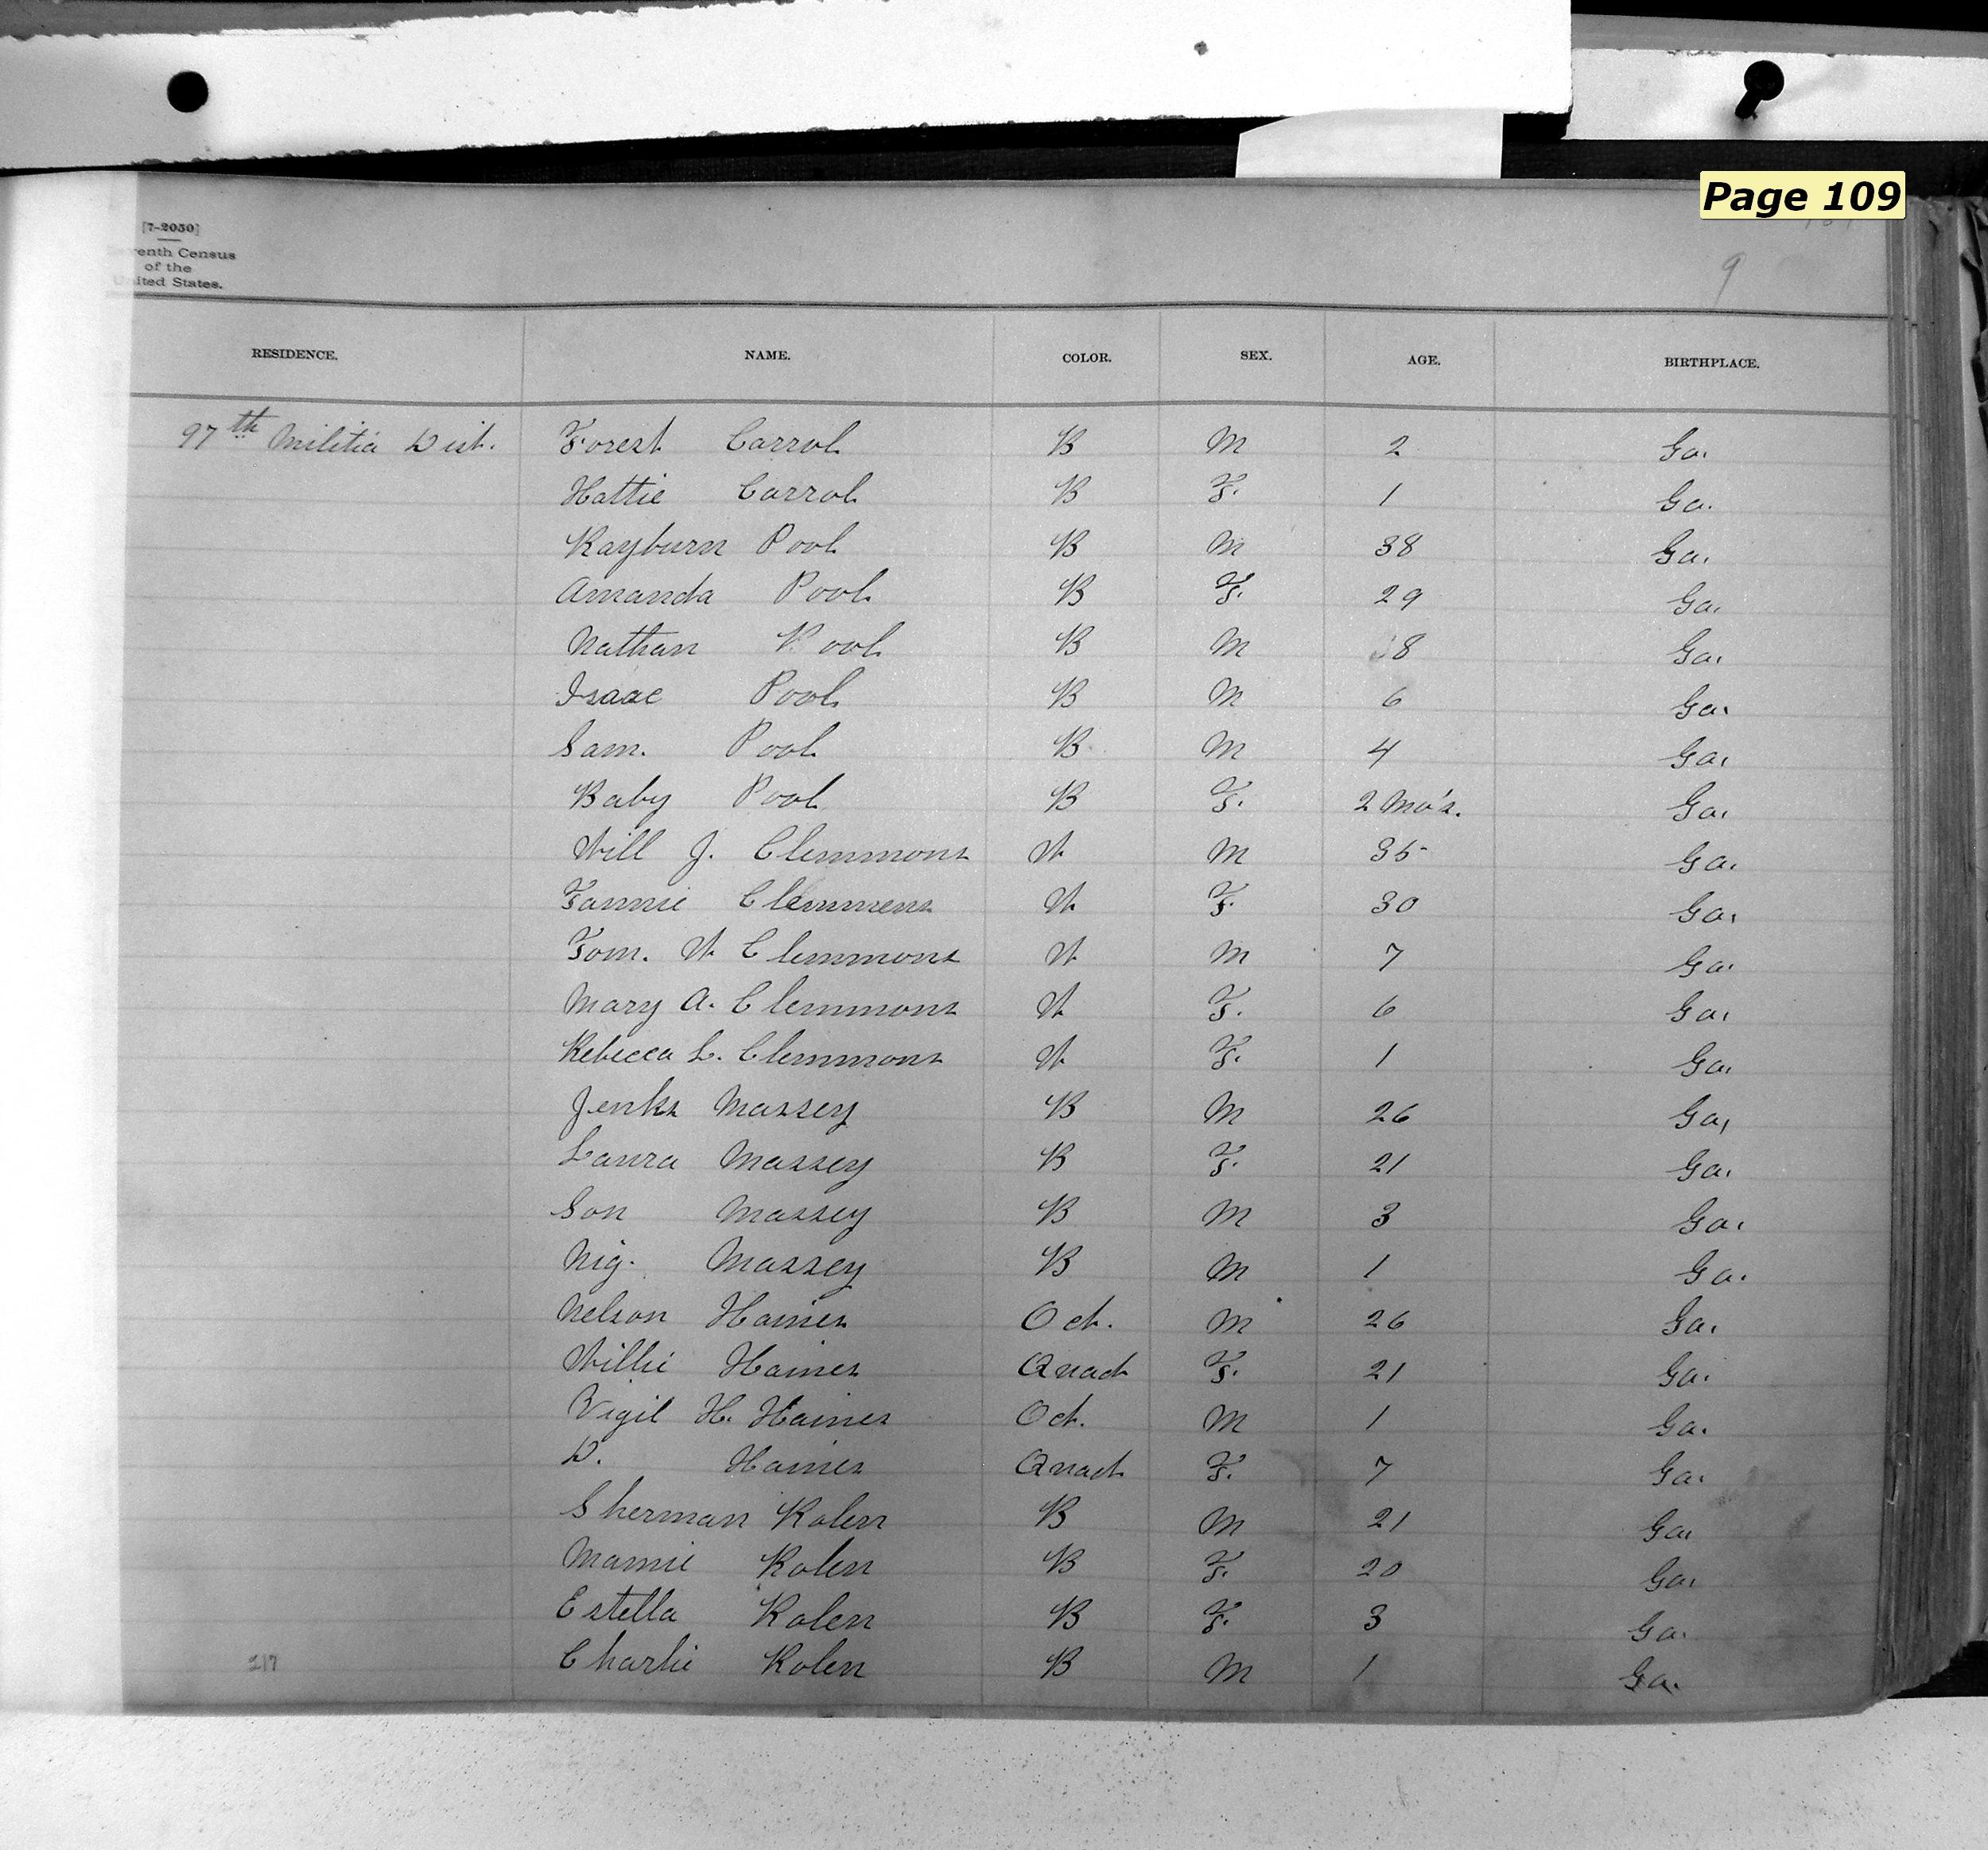 Page 109
[7-2050]
enth Census
of the
United States.
9
RESIDENCE. NAME. COLOR. SEX. AGE. BIRTHPLACE.
97th Militia Dist. Forest Carrol B M 2 Ga.
Hattie Carrol B F. 1 Ga.
Rayburn Pool B M 38 Ga.
Amanda Pool B F. 29 Ga.
Nathan Pool B M 8 Ga.
Isaac Pool B M 6 Ga.
Sam. Pool B M 4 Ga.
Baby Pool B F. 2 Mo's. Ga.
Will J. Clemmons W M 35 Ga.
Fannie Clemmens W F. 30 Ga.
Tom. W Clemmons W M 7 Ga.
Mary A. Clemmons W F. 6 Ga.
Rebecca L. Clemmons W F. 1 Ga.
Jenks Massey B M 26 Ga,
Laura Massey B F. 21 Ga.
Son Massey B M 3 Ga.
Nig. Massey B M 1 Ga.
Nelson Haines Oct. M 26 Ga.
Willie Haines Quad F. 21 Ga.
Vigil H. Haines Oct. M 1 Ga.
D. Haines Quad F. 7 Ga.
Sherman Rolen B M 21 Ga.
Mamie Rolen B F. 20 Ga.
Estella Rolen B F. 3 Ga.
217 Charlie Rolen B M 1 Ga.